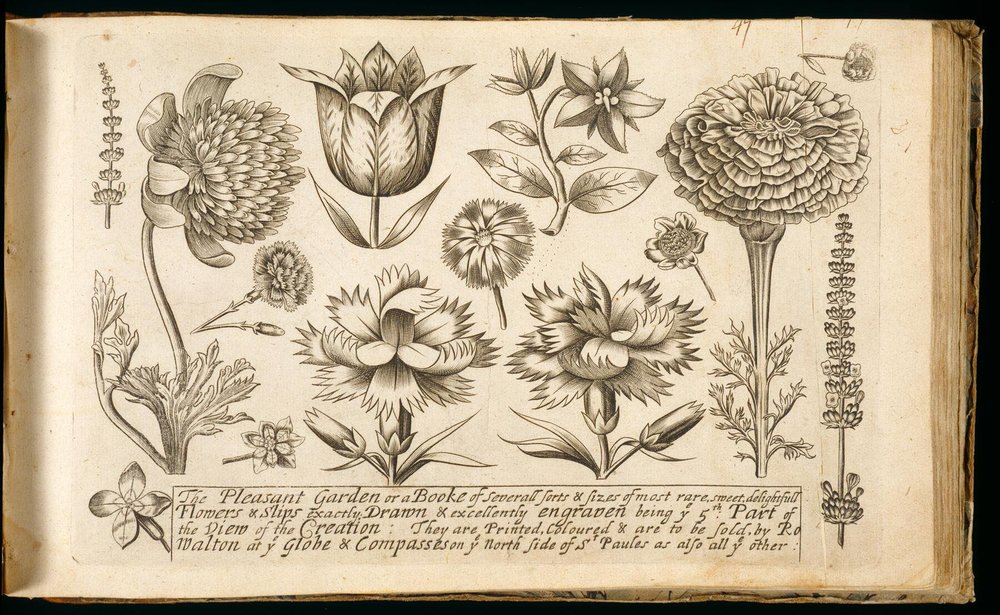 47
The Pleasant Garden or a Booke of Severall sorts & sizes of most rare, sweet, delightfull
Flowers & slips exactly Drawn & excellently engraven being yͤ 5th Part of
the View of the Creation : They are Printed, Coloured & are to be sold, by Ro
Walton at yͤ Globe & Compasses on yͤ North side of St Paules as also all yͤ other :